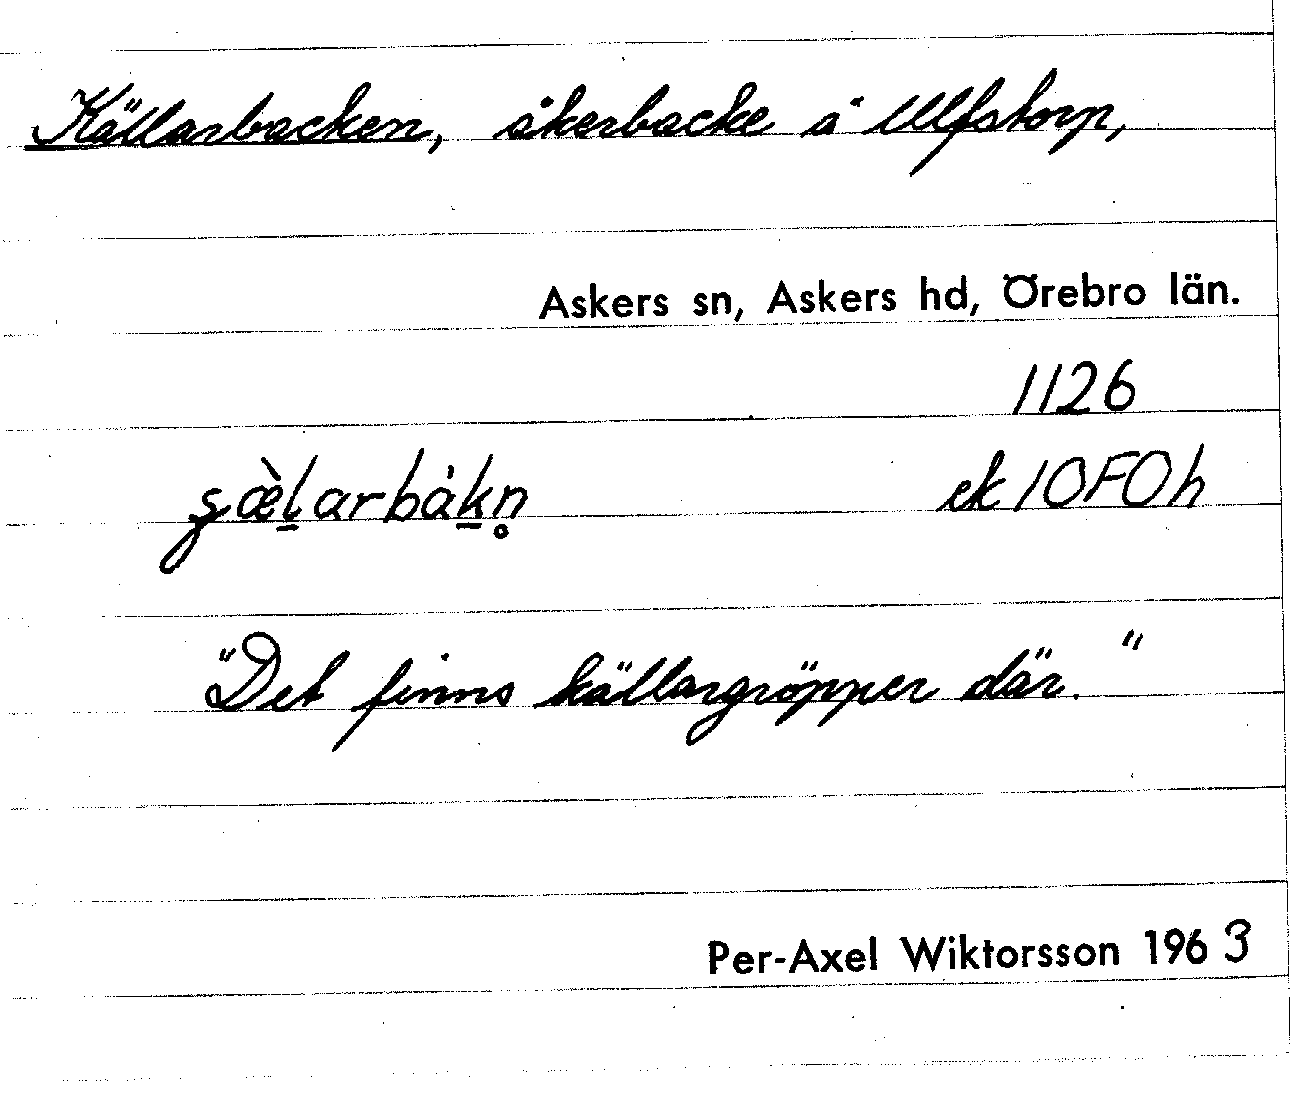 Källarbacken, åkerbacke å Ulfstorp,
Askers sn, Askers hd, Örebro län.
1126
ek 10F0h
"Det finns källargröpper där."
Per-Axel Wiktorsson 1963